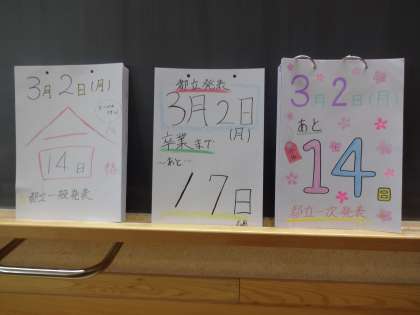 3月2日(月)
14日
都立一般発表
都立発表
3月2日
(月)
卒業まで
〜あと…
17日
3月2日(月)
あと
14日
都立一次発表